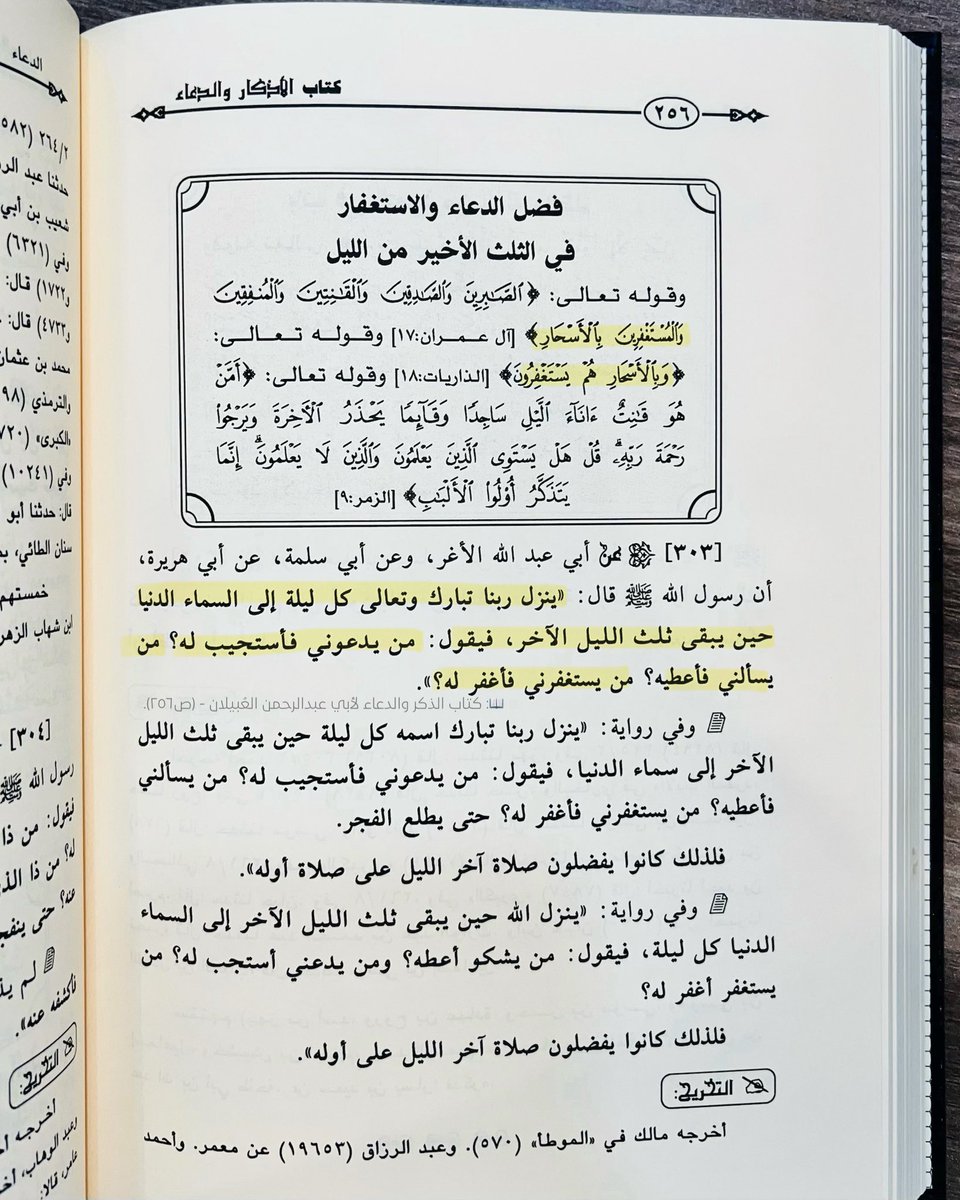 كتاب الأذكار والدعاء
٢٥٦
فضل الدعاء والاستغفار
في الثلث الأخير من الليل
وقوله تعالى: ﴿ٱلصَّٰبِرِينَ وَٱلصَّٰدِقِينَ وَٱلۡقَٰنِتِينَ وَٱلۡمُنفِقِينَ
وَٱلۡمُسۡتَغۡفِرِينَ بِٱلۡأَسۡحَارِ﴾ [آل عمران:١٧] وقوله تعالى:
﴿وَبِٱلۡأَسۡحَارِ هُمۡ يَسۡتَغۡفِرُونَ﴾ [الذاريات:١٨] وقوله تعالى: ﴿أَمَّنۡ
هُوَ قَٰنِتٌ ءَانَآءَ ٱلَّيۡلِ سَاجِدٗا وَقَآئِمٗا يَحۡذَرُ ٱلۡأٓخِرَةَ وَيَرۡجُواْ
رَحۡمَةَ رَبِّهِۦۗ قُلۡ هَلۡ يَسۡتَوِي ٱلَّذِينَ يَعۡلَمُونَ وَٱلَّذِينَ لَا يَعۡلَمُونَۗ إِنَّمَا
يَتَذَكَّرُ أُوْلُواْ ٱلۡأَلۡبَٰبِ﴾ [الزمر:٩]
[٣٠٣] عن أبي عبد الله الأغر، وعن أبي سلمة، عن أبي هريرة،
أن رسول الله ﷺ قال: «ينزل ربنا تبارك وتعالى كل ليلة إلى السماء الدنيا
حين يبقى ثلث الليل الآخر، فيقول: من يدعوني فأستجيب له؟ من
يسألني فأعطيه؟ من يستغفرني فأغفر له؟».
📖: كتاب الذكر والدعاء لأبي عبدالرحمن العُبيلان - (ص٢٥٦).
وفي رواية: «ينزل ربنا تبارك اسمه كل ليلة حين يبقى ثلث الليل
الآخر إلى سماء الدنيا، فيقول: من يدعوني فأستجيب له؟ من يسألني
فأعطيه؟ من يستغفرني فأغفر له؟ حتى يطلع الفجر.
فلذلك كانوا يفضلون صلاة آخر الليل على صلاة أوله».
وفي رواية: «ينزل الله حين يبقى ثلث الليل الآخر إلى السماء
الدنيا كل ليلة، فيقول: من يشكو أعطه؟ ومن يدعني أستجب له؟ من
يستغفر أغفر له؟
فلذلك كانوا يفضلون صلاة آخر الليل على أوله».
التخريج:
أخرجه مالك في «الموطأ» (٥٧٠). وعبد الرزاق (١٩٦٥٣) عن معمر. وأحمد
الدعاء
٢٦٤/٢ (٥٨٢
حدثنا عبد الر
شعيب بن أبي
وفي (٦٣٢١)
و١٧٢٢) قال:
و٤٧٣٢) قال:
محمد بن عثمان
والترمذي (٩٨
«الكبرى» (٧٢٠
وفي (١٠٢٤١)
قال: حدثنا أبو
سنان الطائي، بم
خمستهم
ابن شهاب الزهر
[٣٠٤]
رسول الله ﷺ
فيقول: من ذا
له؟ من ذا الذ
عنه؟ حتى ينفج
لم يذ
فأكشفه عنه».
التخريج:
أخرجه أح
وعبد الوهاب، أخ
عامر، قالا: